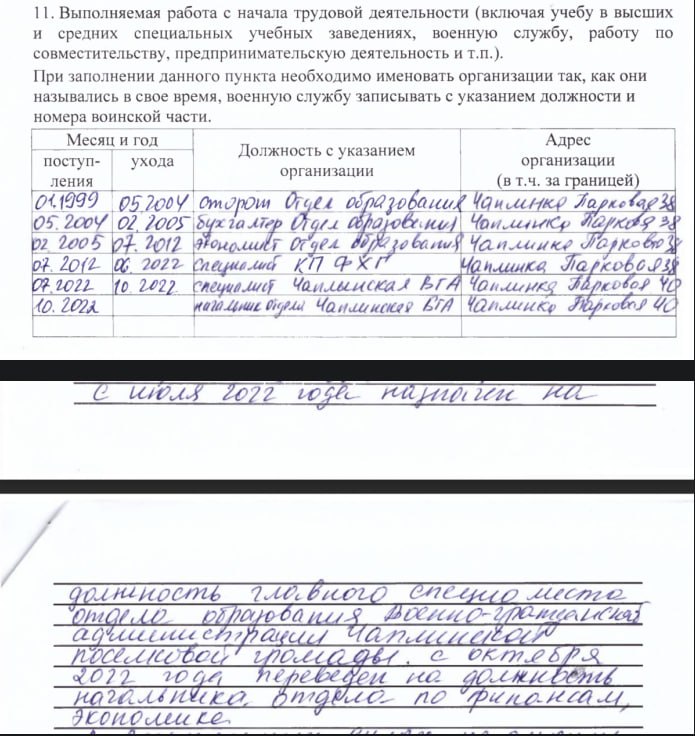 11. Выполняемая работа с начала трудовой деятельности (включая учебу в высших
и средних специальных учебных заведениях, военную службу, работу по
совместительству, предпринимательскую деятельность и т.п.).
При заполнении данного пункта необходимо именовать организации так, как они
назывались в свое время, военную службу записывать с указанием должности и
номера воинской части.
Месяц и год
поступ-
ления
ухода
Должность с указанием
организации
Адрес
организации
(в т.ч. за границей)
01.1999 05.2004 сторож Отдел образования Чаплинка Парковая 38
05.2004 02.2005 бухгалтер Отдел образования Чаплинка Парковая 38
02.2005 07.2012 экономист Отдел образования Чаплинка Парковая 38
07.2012 06.2022 специалист КП ФХГ Чаплинка Парковая 38
07.2022 10.2022 специалист Чаплынская ВГА Чаплинка Парковая 40
10.2022 начальник отдела Чаплинская ВГА Чаплинка Парковая 40
с июля 2022 года назначен на
должность главного специалиста
отдела образования Военно-гражданской
администрации Чаплинской
поселковой громады. с октября
2022 года переведен на должность
начальника отдела по финансам,
экономике